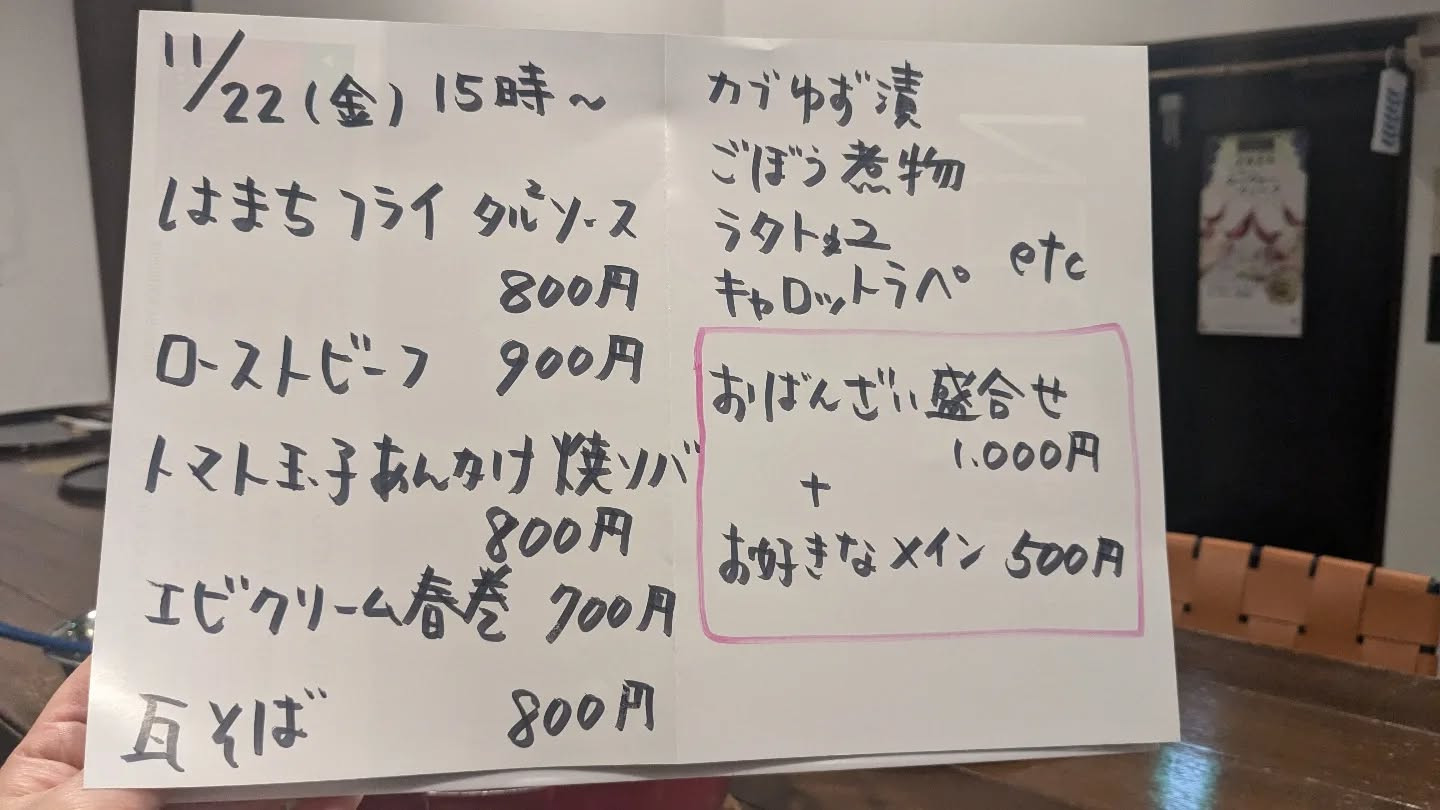 11/22(金) 15時～
はまちフライ タル²ソース
800円
ローストビーフ 900円
トマト玉子あんかけ焼ソバ
800円
エビクリーム春巻 700円
瓦そば 800円
カブゆず漬
ごぼう煮物
ラタト
キャロットラペ etc
おばんざい盛合せ
1.000円
+
お好きなメイン 500円